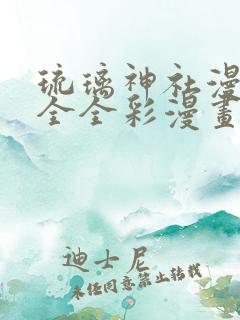 琉璃神社漫
全全彩漫畫
迪士尼
未经同意禁止转载